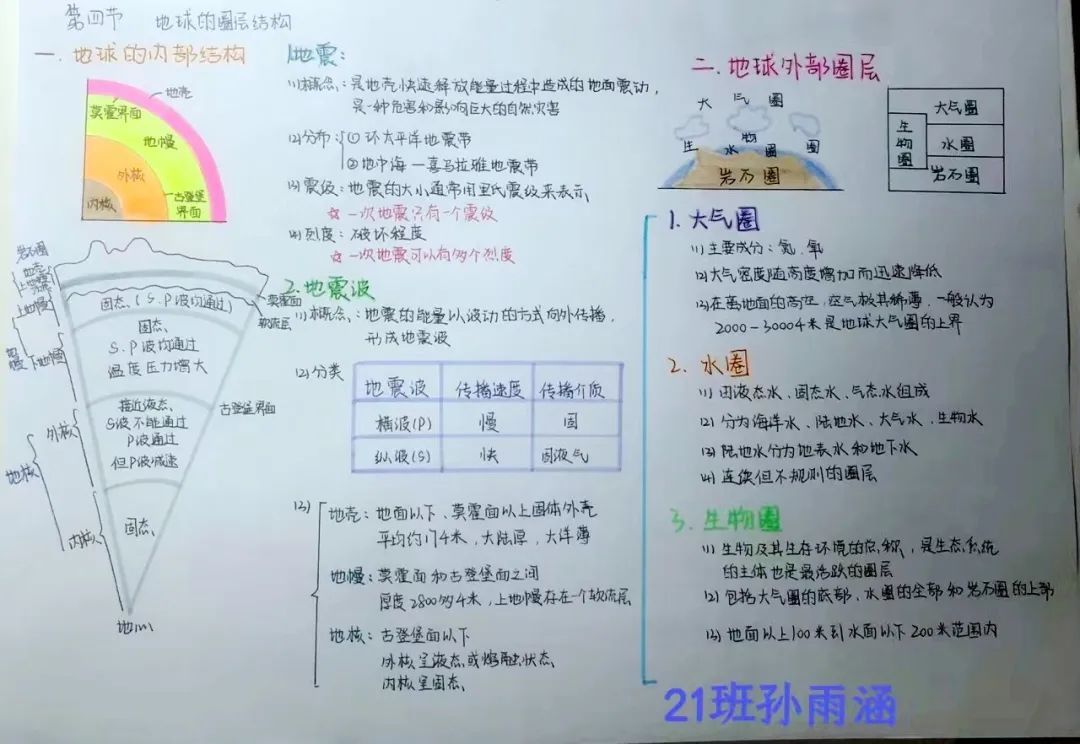 第四节 地球的圈层结构
一. 地球的内部结构
地壳
莫霍界面
地幔
外核
古登堡
界面
内核
岩石圈
地壳
上地幔
地幔
下地幔
外核
地核
内核
地心
固态、(S、P波均通过)
莫霍面
软流层
固态、
S、P波均通过
温度压力增大
古登堡界面
接近液态、
S波不能通过
P波通过
但P波减速
固态、
1.地震:
(1)概念:是地壳快速释放能量过程中造成的地面震动,
是一种危害和影响巨大的自然灾害
(2)分布:①环太平洋地震带
②地中海—喜马拉雅地震带
(3)震级:地震的大小通常用里氏震级来表示、
☆ 一次地震只有一个震级
(4)烈度:破坏程度
☆ 一次地震可以有多个烈度
2.地震波
(1)概念:地震的能量以波动的方式向外传播,
形成地震波
(2)分类
地震波 传播速度 传播介质
横波(P) 慢 固
纵波(S) 快 固液气
(3)
地壳:地面以下、莫霍面以上固体外壳
平均约17千米,大陆厚,大洋薄
地幔:莫霍面和古登堡面之间
厚度2800多千米,上地幔存在一个软流层
地核:古登堡面以下
外核呈液态或熔融状态、
内核呈固态、
二.地球外部圈层
大气圈
生物圈
水圈
岩石圈
大气圈
生物圈
水圈
岩石圈
1.大气圈
(1)主要成分:氮.氧
(2)大气密度随高度增加而迅速降低
(3)在离地面的高空,空气极其稀薄,一般认为
2000-3000千米是地球大气圈的上界
2.水圈
(1)由液态水、固态水、气态水组成
(2)分为海洋水、陆地水、大气水、生物水
(3)陆地水分为地表水和地下水
(4)连续但不规则的圈层
3.生物圈
(1)生物及其生存环境的总称,是生态系统
的主体也是最活跃的圈层
(2)包括大气圈的底部、水圈的全部和岩石圈的上部
(3)地面以上100米到水面以下200米范围内
21班孙雨涵